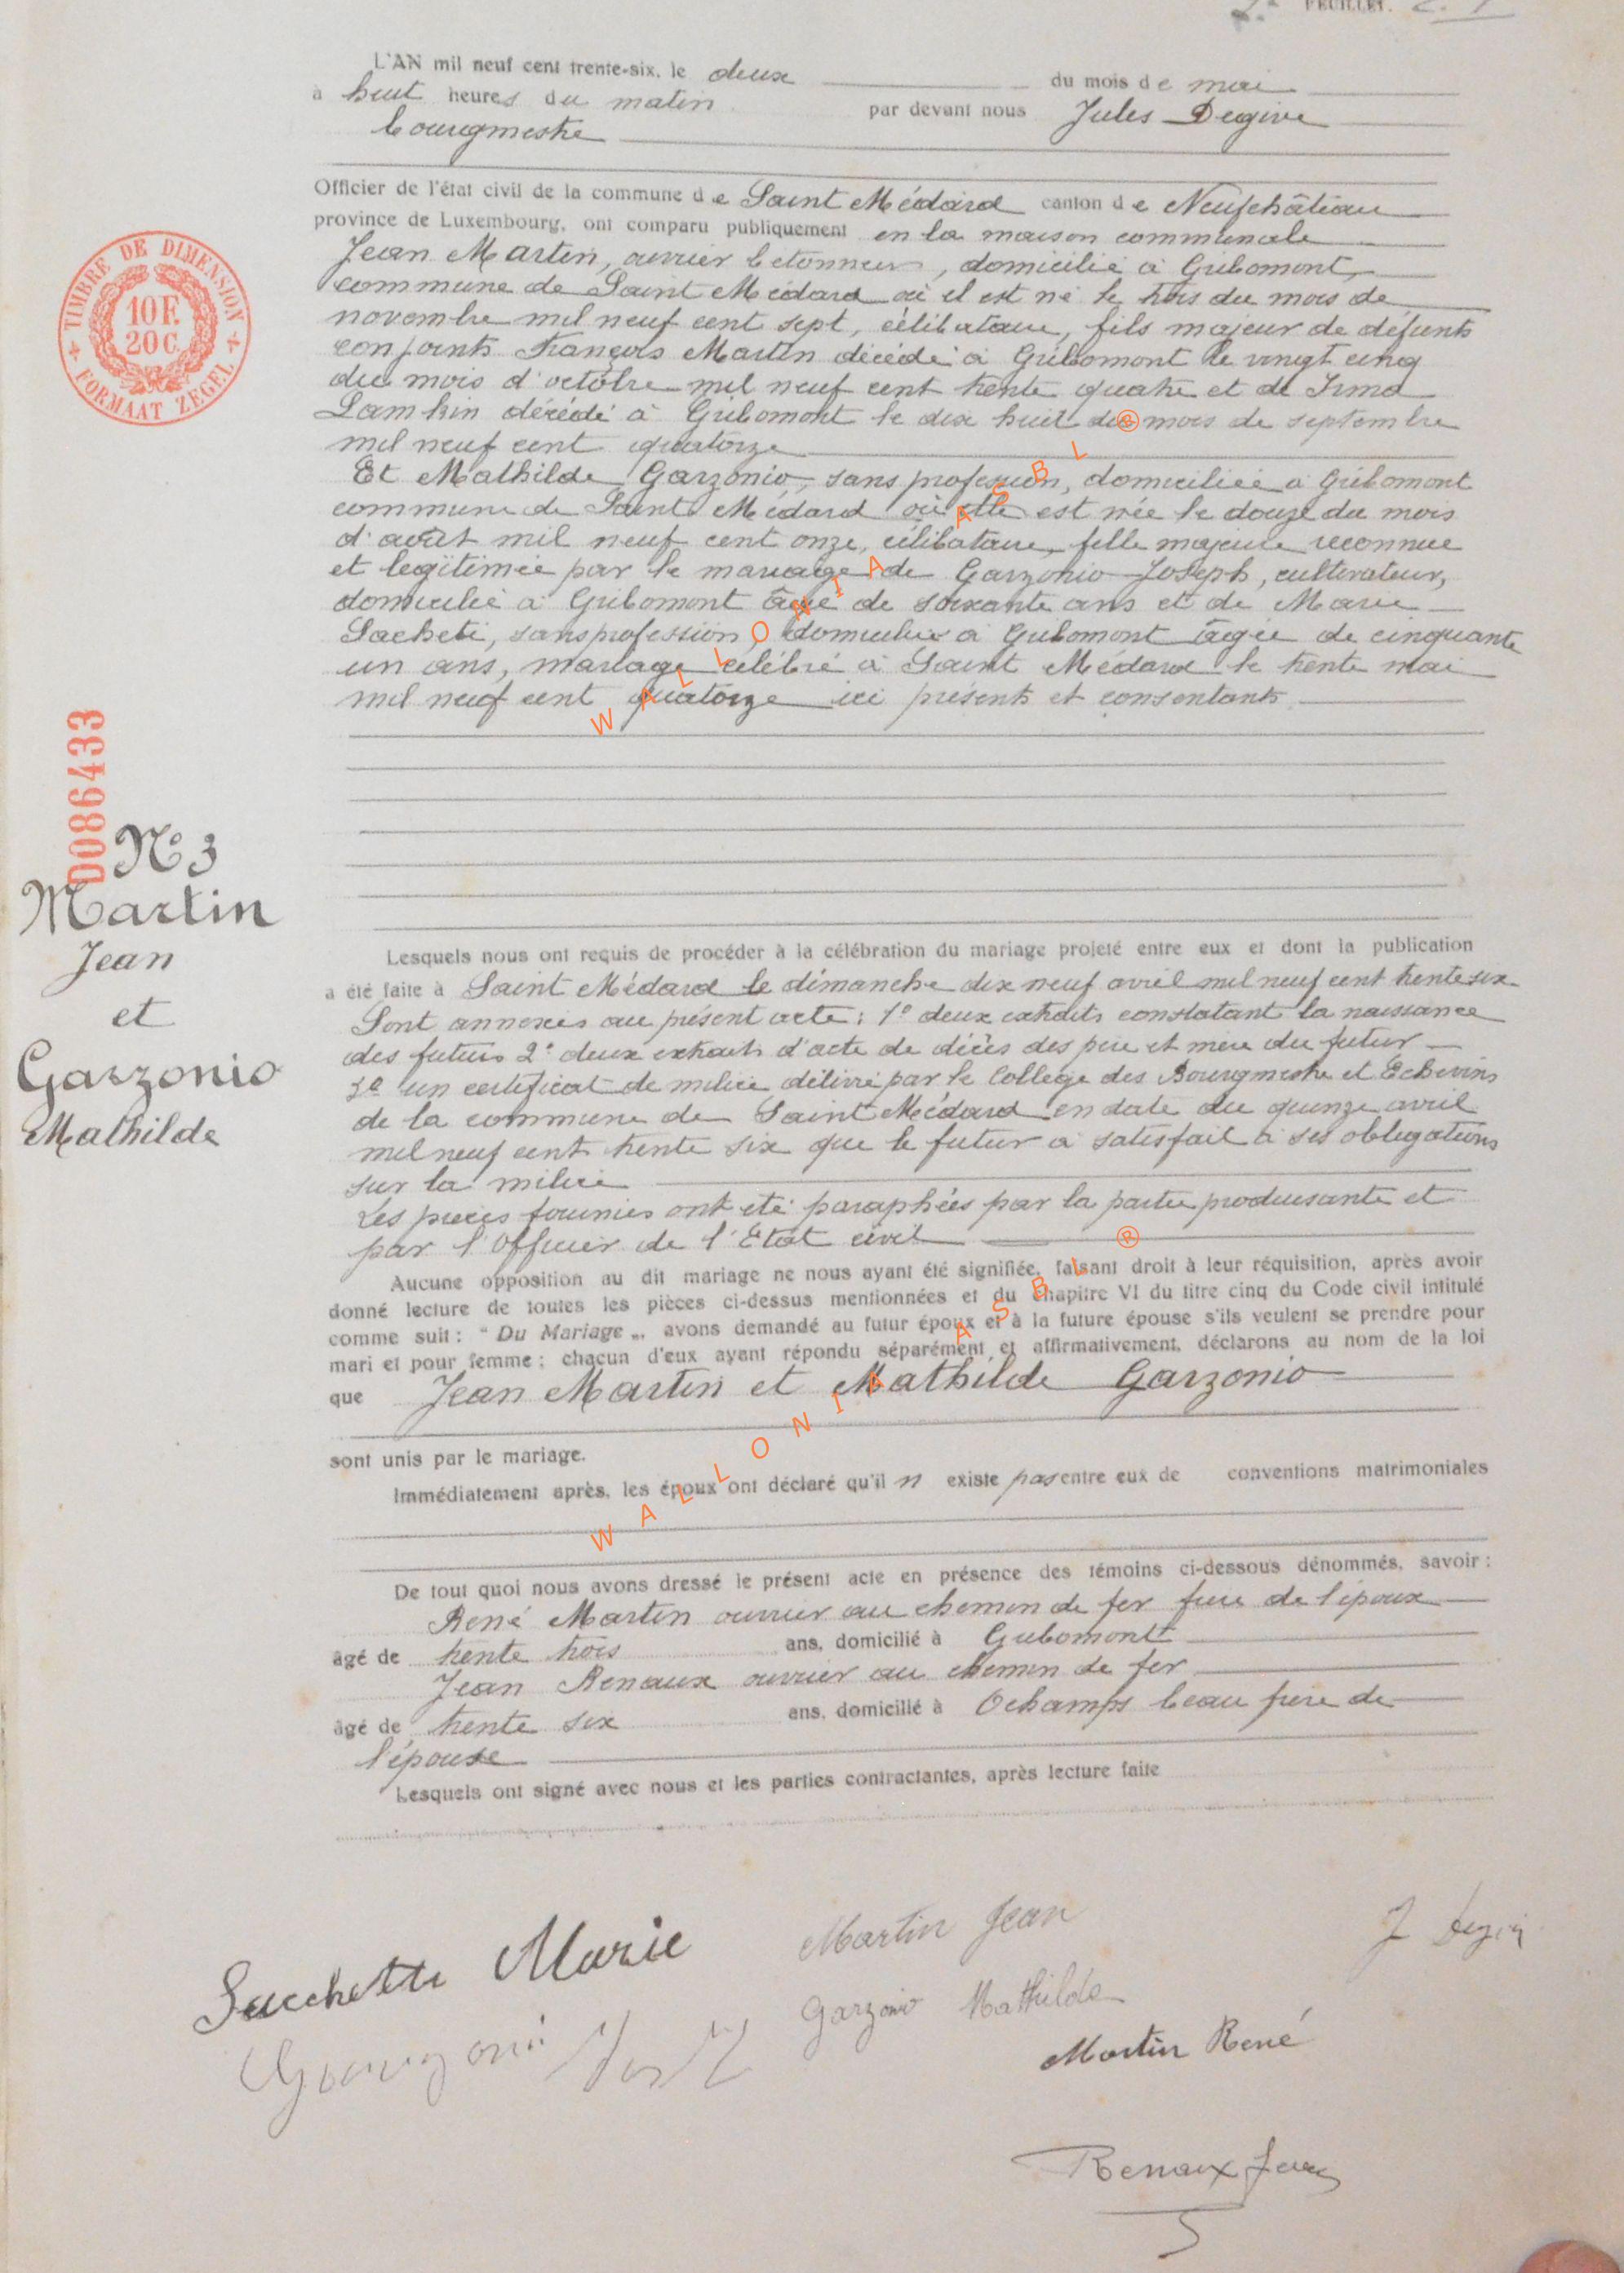 2e FEUILLET.
L'AN mil neuf cent trente-six, le deux du mois de mai
à huit heures du matin par devant nous Jules Degive
bourgmestre
Officier de l'état civil de la commune de Saint Médard canton de Neufchâteau
province de Luxembourg, ont comparu publiquement en la maison communale
Jean Martin, ouvrier bétonneur, domicilié à Gribomont,
commune de Saint Médard où il est né le trois du mois de
novembre mil neuf cent sept, célibataire, fils majeur de défunts
conjoints François Martin décédé à Gribomont le vingt cinq
du mois d'octobre mil neuf cent trente quatre et de Irma
Lamkin décédé à Gribomont le dix huit du mois de septembre
mil neuf cent quatorze
Et Mathilde Garzonio, sans profession, domiciliée à Gribomont
commune de Saint Médard où elle est née le douze du mois
d'août mil neuf cent onze, célibataire, fille majeure reconnue
et legitimée par le mariage de Garzonio Joseph, cultivateur,
domicilié à Gribomont âgé de soixante ans et de Marie
Sacheti, sans profession, domiciliée à Gribomont âgée de cinquante
un ans, mariage célébré à Saint Médard le trente mai
mil neuf cent quatorze ici présents et consentants
TIMBRE DE DIMENSION
10 F.
20 C.
FORMAAT ZEGEL
D086433
N° 3
Martin
Jean
et
Garzonio
Mathilde
Lesquels nous ont requis de procéder à la célébration du mariage projeté entre eux et dont la publication
a été faite à Saint Médard le dimanche dix neuf avril mil neuf cent trente six
Sont annexés au présent acte : 1° deux extraits constatant la naissance
des futurs 2° deux extraits d'acte de décès des père et mère du futur
3° un certificat de milice délivré par le Collège des Bourgmestre et Echevins
de la commune de Saint Médard en date du quinze avril
mil neuf cent trente six que le futur a satisfait à ses obligations
sur la milice
Les pièces fournies ont été paraphées par la partie produisante et
par l'Officier de l'Etat civil
Aucune opposition au dit mariage ne nous ayant été signifiée, faisant droit à leur réquisition, après avoir
donné lecture de toutes les pièces ci-dessus mentionnées et du chapitre VI du titre cinq du Code civil intitulé
comme suit : " Du Mariage ", avons demandé au futur époux et à la future épouse s'ils veulent se prendre pour
mari et pour femme ; chacun d'eux ayant répondu séparément et affirmativement, déclarons au nom de la loi
que Jean Martin et Mathilde Garzonio
sont unis par le mariage.
Immédiatement après, les époux ont déclaré qu'il n existe pas entre eux de conventions matrimoniales
De tout quoi nous avons dressé le présent acte en présence des témoins ci-dessous dénommés, savoir :
René Martin ouvrier au chemin de fer frère de l'époux
âgé de trente trois ans, domicilié à Gribomont
Jean Renaux ouvrier au chemin de fer
âgé de trente six ans, domicilié à Ochamps beau frère de
l'épouse
Lesquels ont signé avec nous et les parties contractantes, après lecture faite
Sacchetti Marie
Martin Jean
J Degive
Garzonio Mathilde
Martin René
Renaux Jean
WALLONIA ASBL ®
WALLONIA ASBL ®